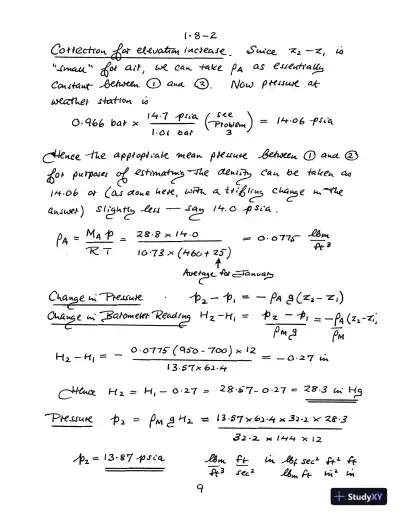 1.8-2
Correction for elevation increase. Since z₂ - z₁ is
"small" for air, we can take ρA as essentially
constant between ① and ②. Now pressure at
weather station is
0.966 bar × 14.7 psia / 1.01 bar (see Problem 3) = 14.06 psia
Hence the appropriate mean pressure between ① and ②
for purposes of estimating the density can be taken as
14.06 or (as done here, with a trifling change in the
answer) slightly less — say 14.0 psia.
ρA = MA p / R T = 28.8 × 14.0 / 10.73 × (460 + 25) = 0.0775 lbm / ft³
↑
Average for January
Change in Pressure . p₂ - p₁ = - ρA g (z₂ - z₁)
Change in Barometer Reading H₂ - H₁ = p₂ - p₁ / ρM g = - ρA (z₂ - z₁ / ρM
H₂ - H₁ = - 0.0775 (950 - 700) × 12 / 13.57 × 62.4 = - 0.27 in
Hence H₂ = H₁ - 0.27 = 28.57 - 0.27 = 28.3 in Hg
Pressure p₂ = ρM g H₂ = 13.57 × 62.4 × 32.2 × 28.3 / 32.2 × 144 × 12
p₂ = 13.87 psia lbm / ft³ ft / sec² in lbf sec² ft² ft / lbm ft in² in
9
StudyXY